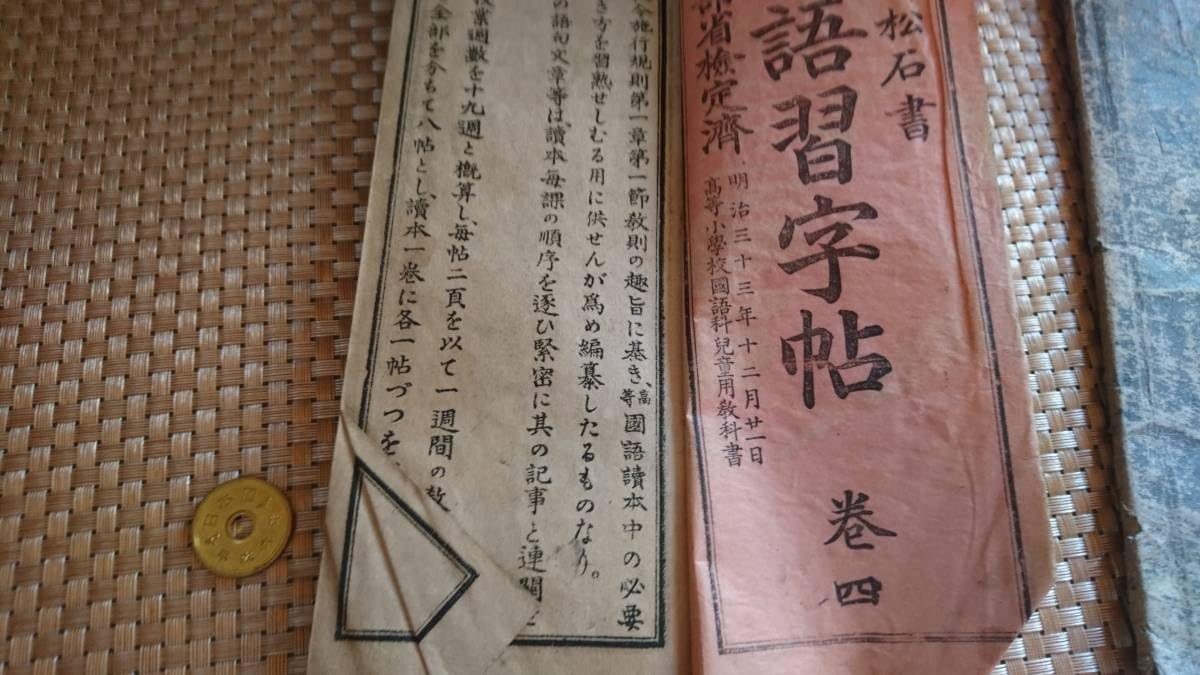 松石書
語習字帖 卷四
部省檢定濟
明治三十三年十二月廿一日
高等小學校國語科兒童用敎科書
令施行規則第一章第一節敎則の趣旨に基き、高等國語讀本中の必要
き方を習熟せしむる用に供せんが爲め編纂したるものなり。
の語句文章等は讀本每課の順序を逐ひ緊密に其の記事と連關
業週數を十九週と概算し、每帖二頁を以て一週間の敎
全部を分ちて八帖とし、讀本一卷に各一帖づつを